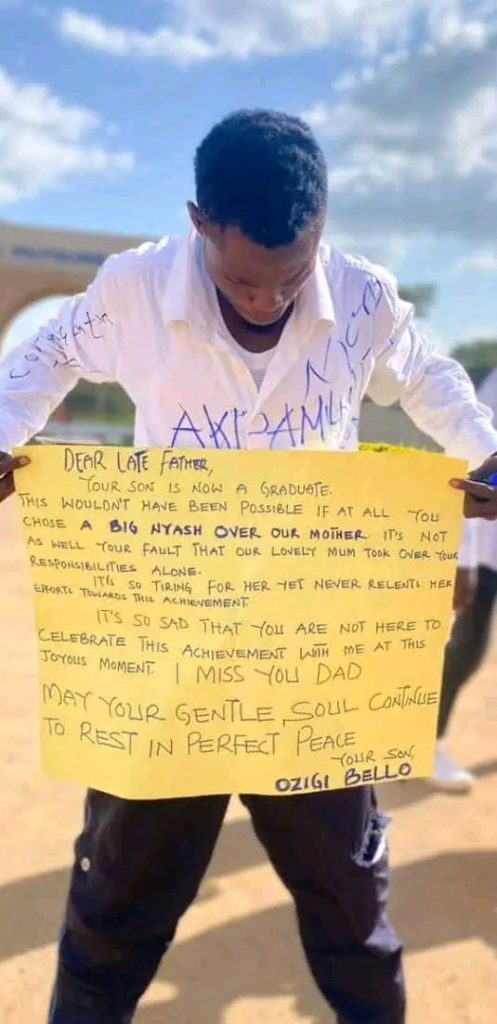 AKPAMU
DEAR LATE FATHER,
YOUR SON IS NOW A GRADUATE.
THIS WOULDN'T HAVE BEEN POSSIBLE IF AT ALL YOU
CHOSE A BIG NYASH OVER OUR MOTHER. IT'S NOT
AS WELL YOUR FAULT THAT OUR LOVELY MUM TOOK OVER YOUR
RESPONSIBILITIES ALONE.
IT'S SO TIRING FOR HER YET NEVER RELENTS HER
EFFORTS TOWARDS THIS ACHIEVEMENT.
IT'S SO SAD THAT YOU ARE NOT HERE TO
CELEBRATE THIS ACHIEVEMENT WITH ME AT THIS
JOYOUS MOMENT. I MISS YOU DAD
MAY YOUR GENTLE SOUL CONTINUE
TO REST IN PERFECT PEACE
YOUR SON,
OZIGI BELLO